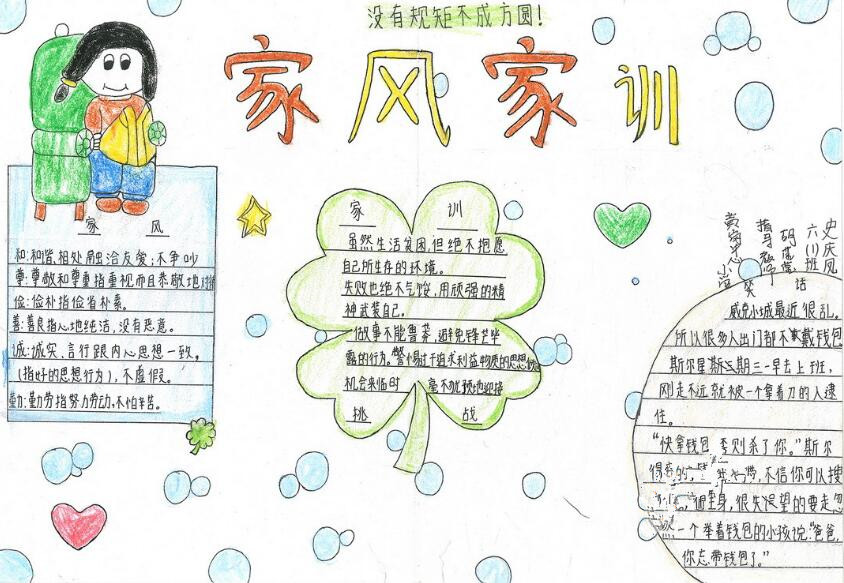 没有规矩不成方圆!
家风家训
家 风
和:和谐,相处融洽友爱,不争吵
尊:尊敬和尊重指重视而且恭敬地对待
俭:俭朴指俭省朴素。
善:善良指心地纯洁,没有恶意。
诚:诚实,言行跟内心思想一致。
(指好的思想行为),不虚假。
勤:勤劳指努力劳动,不怕辛苦。
家 训
虽然生活贫困,但绝不抱愿
自己所生存的环境。
失败也绝不气馁,用顽强的精
神武装自己。
做事不能鲁莽,避免锋芒毕
露的行为。警惕过于追求利益物质的思想
机会来临时 毫不犹预地迎接
挑 战
史庆凤
六(1)班
指导教师
笑 话
威克小城最近很乱。
所以很多人出门都不戴钱包
斯尔星期三一早去上班,
刚走不远就被一个拿着刀的人逮
住。
“快拿钱包,否则杀了你。”斯尔
不信你可以搜
身,很失望的要走忽
一个举着钱包的小孩说:“爸爸,
你忘带钱包了。”